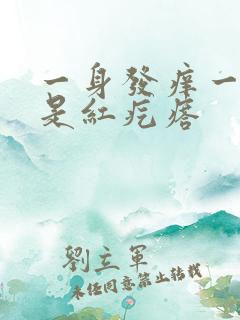 一身發痒一
是紅疙瘩
劉立軍
未經同意禁止轉載